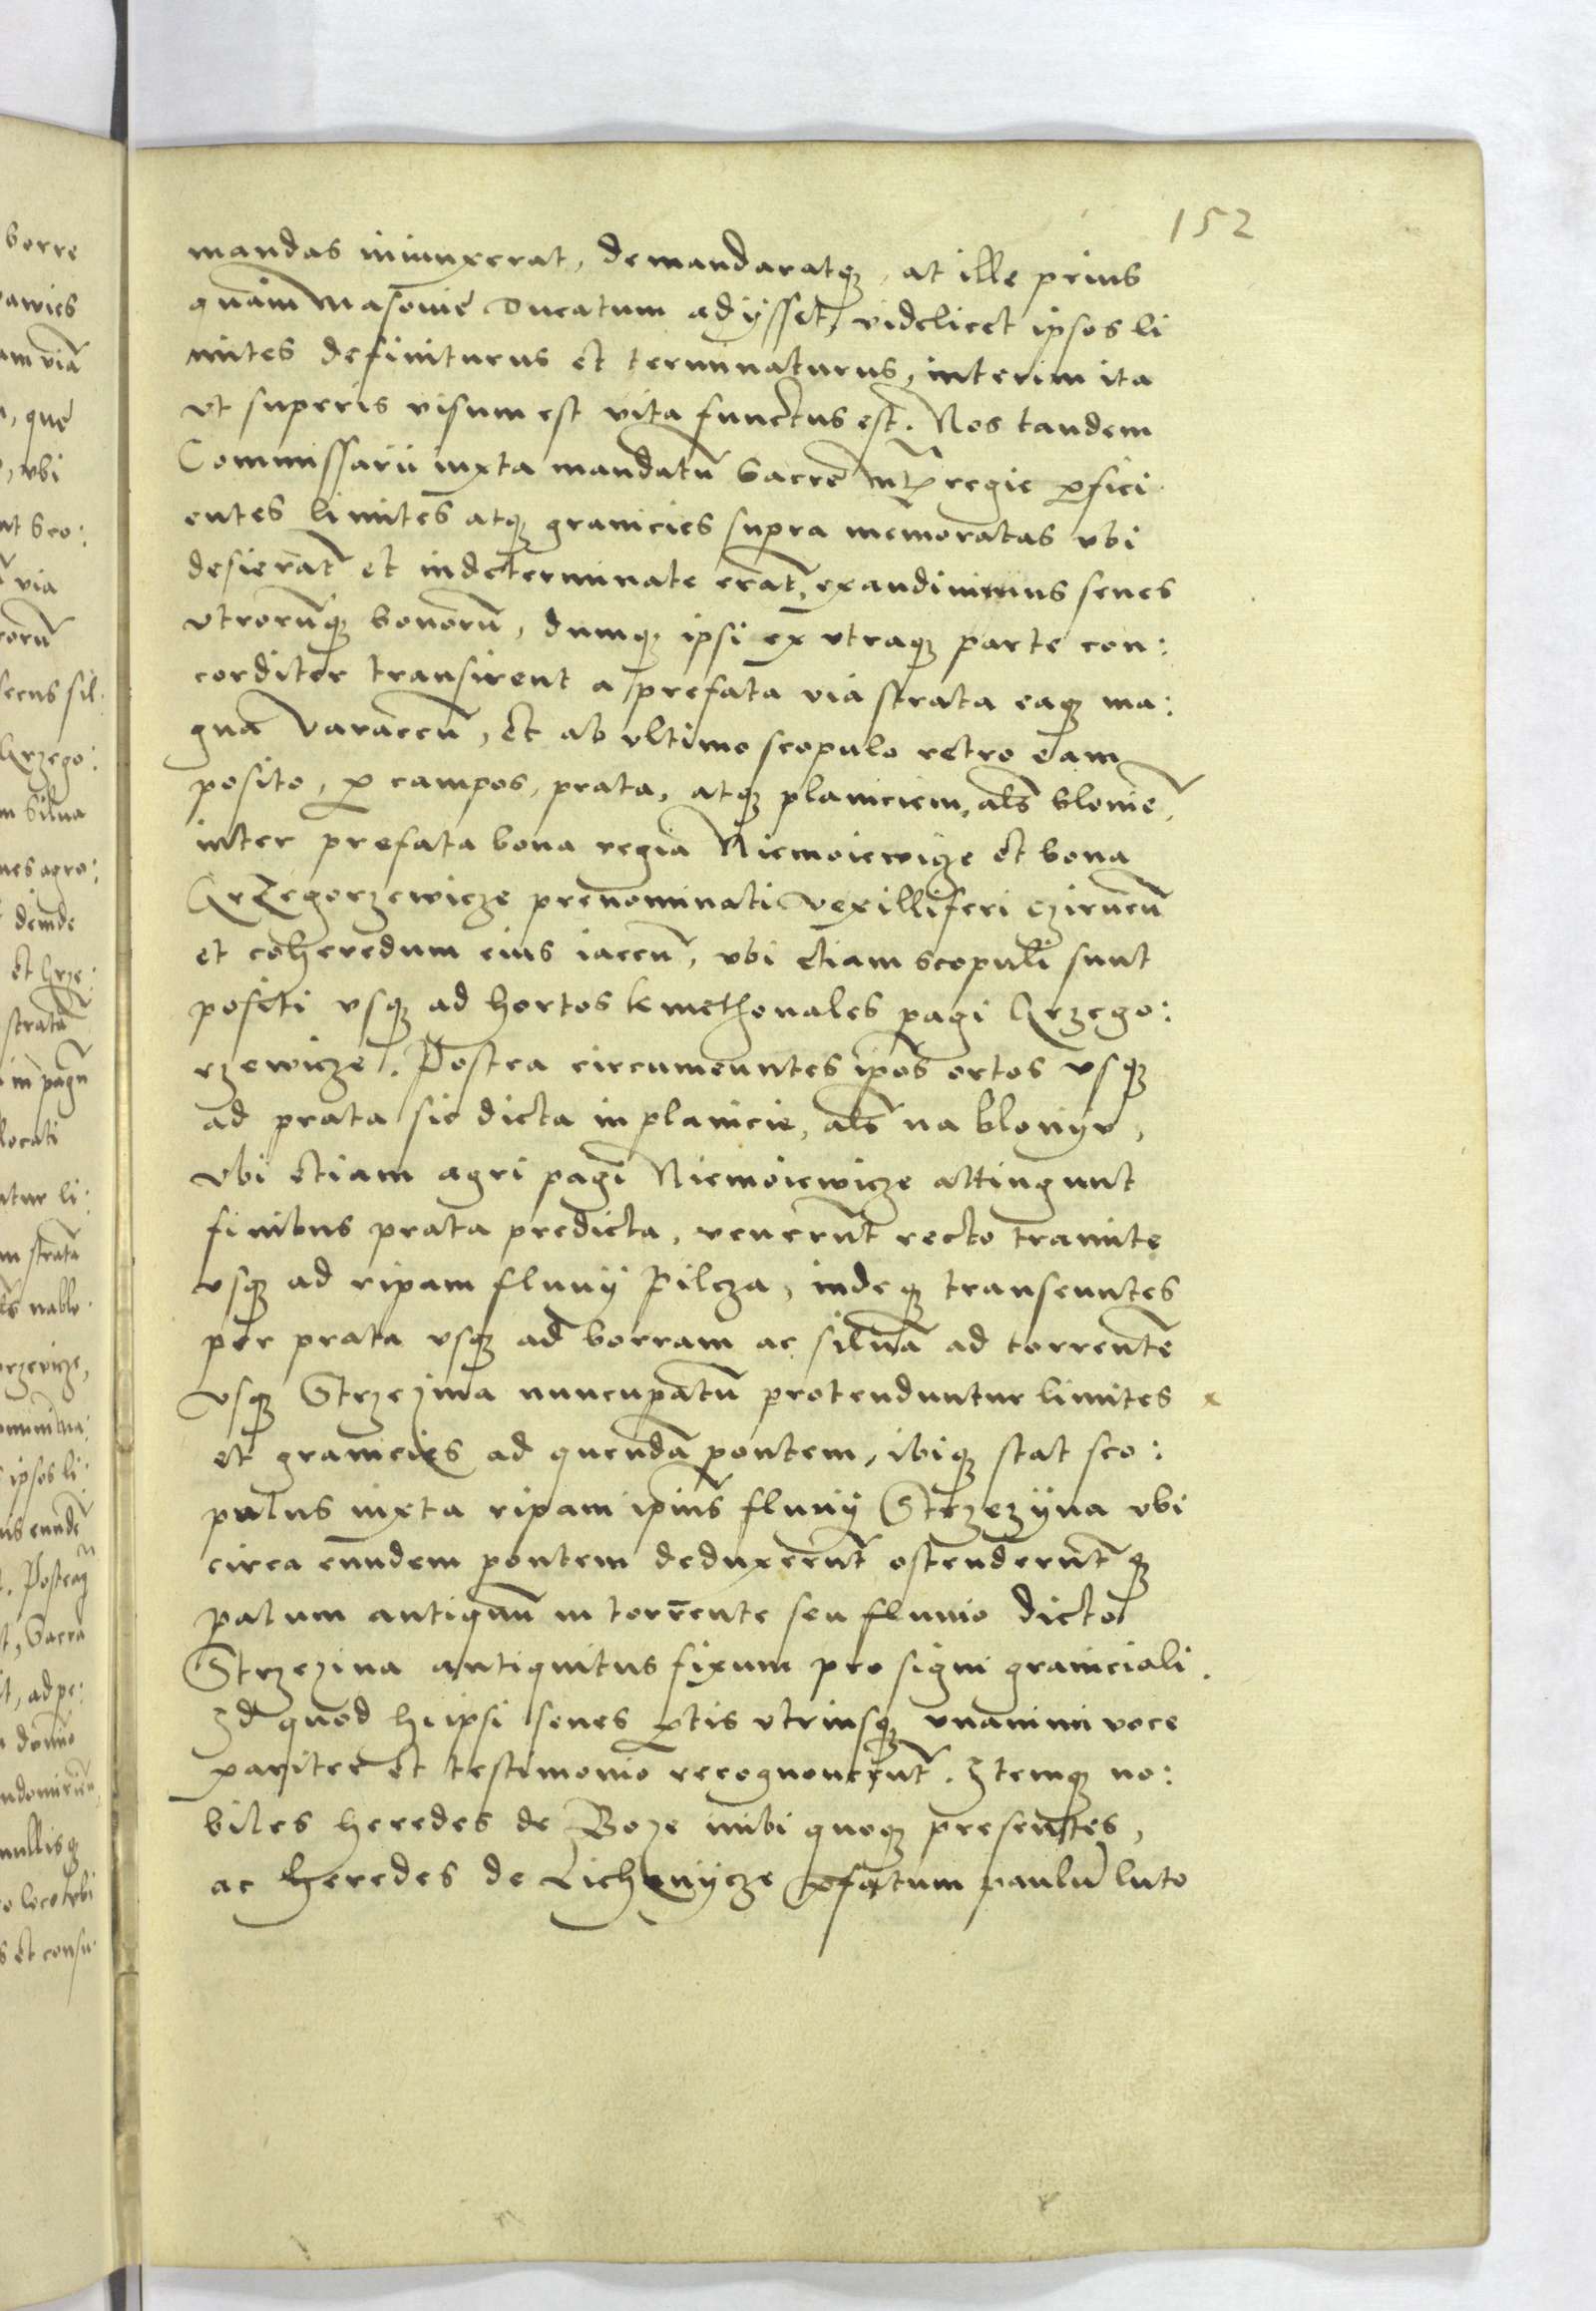 152
mandas iniunxerat, demandaratqꝫ, at ille prius
quam Masovie Ducatum adijsset, videlicet ipsos li
mites definiturus et terminaturus, interim ita
vt superis visum est vita functus est. Nos tandem
Commissarii iuxta mandatū Sacre regie ꝑfici
entes limites atqꝫ granicies supra memoratas vbi
desierāt et indeterminate erāt, exaudivimus senes
vtrorūqꝫ bonorū, dumqꝫ ipsi ex vtraqꝫ parte con:
corditer transirent a prefata via strata eaqꝫ ma:
gna Varaccū, et ab vltimo scopulo retro eam
posito, ꝑ campos, prata, atqꝫ planiciem, als̄ blonie,
inter prefata bona regia Niemoiewicze et bona
Grzegorzewicze prenominati vexilliferi czirneū
et coheredum eius iaceū, vbi etiam scopuli sunt
positi vsqꝫ ad hortos kmethonales pagi Grzego:
rzewicze. Postea circumeuntes ip̄os ortos vsqꝫ
ad prata sic dicta in planicie, als̄ na blonyv,
vbi etiam agri pagi Niemoiewicze attingunt
finibus prata predicta, venerūt recto tramite
vsqꝫ ad ripam fluvij Pilcza, indeqꝫ transeuntes
per prata vsqꝫ ad borram ac siluā ad torrentē
vsqꝫ Strzezina nuncupatū protenduntur limites x
et granicies ad quendā pontem, ibiqꝫ stat sco:
pulus iuxta ripam ip̄ius fluvij Strzezyna vbi
circa eundem pontem deduxerūt ostenderūtqꝫ
palum antiquū in torrente seu fluvio dicto
Strzezina antiquitus fixum pro signi graniciali.
Id quod hi ipsi senes ꝑtis vtriusqꝫ vnanimi voce
pariter et testimonio recognoverūt. Itemqꝫ no:
biles heredes de Boze inibi quoqꝫ presentes,
ac heredes de Lichanycze ꝑfatum paulū luto